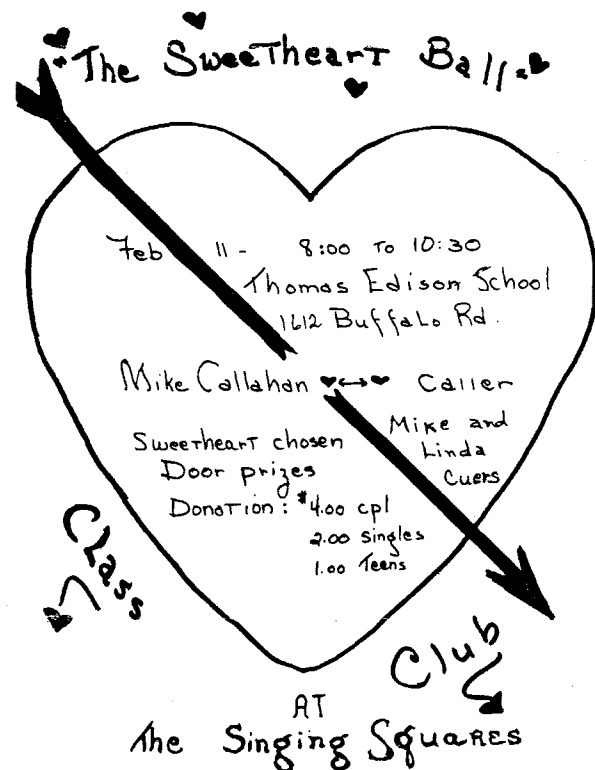 The Sweetheart Ball
Feb 11 - 8:00 to 10:30
Thomas Edison School
1612 Buffalo Rd.
Mike Callahan ↔ Caller
Mike and
Linda
Cuers
Sweetheart chosen
Door prizes
Donation: $4.00 cpl
2.00 singles
1.00 Teens
Class
Club
AT
The Singing Squares